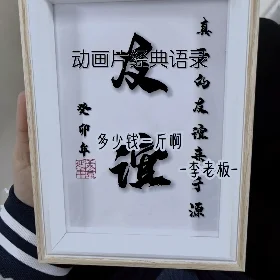 动画片经典语录
真正的友谊来于源
友谊
癸卯年
多少钱一斤啊
-李老板-